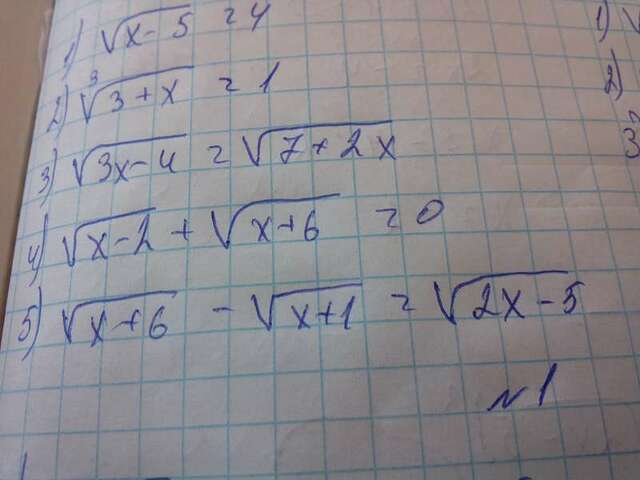 1) √(x-5) = 4
2) ∛(3+x) = 1
3) √(3x-4) = √(7+2x)
4) √(x-2) + √(x+6) = 0
5) √(x+6) - √(x+1) = √(2x-5)
N1
1) √
2)
3